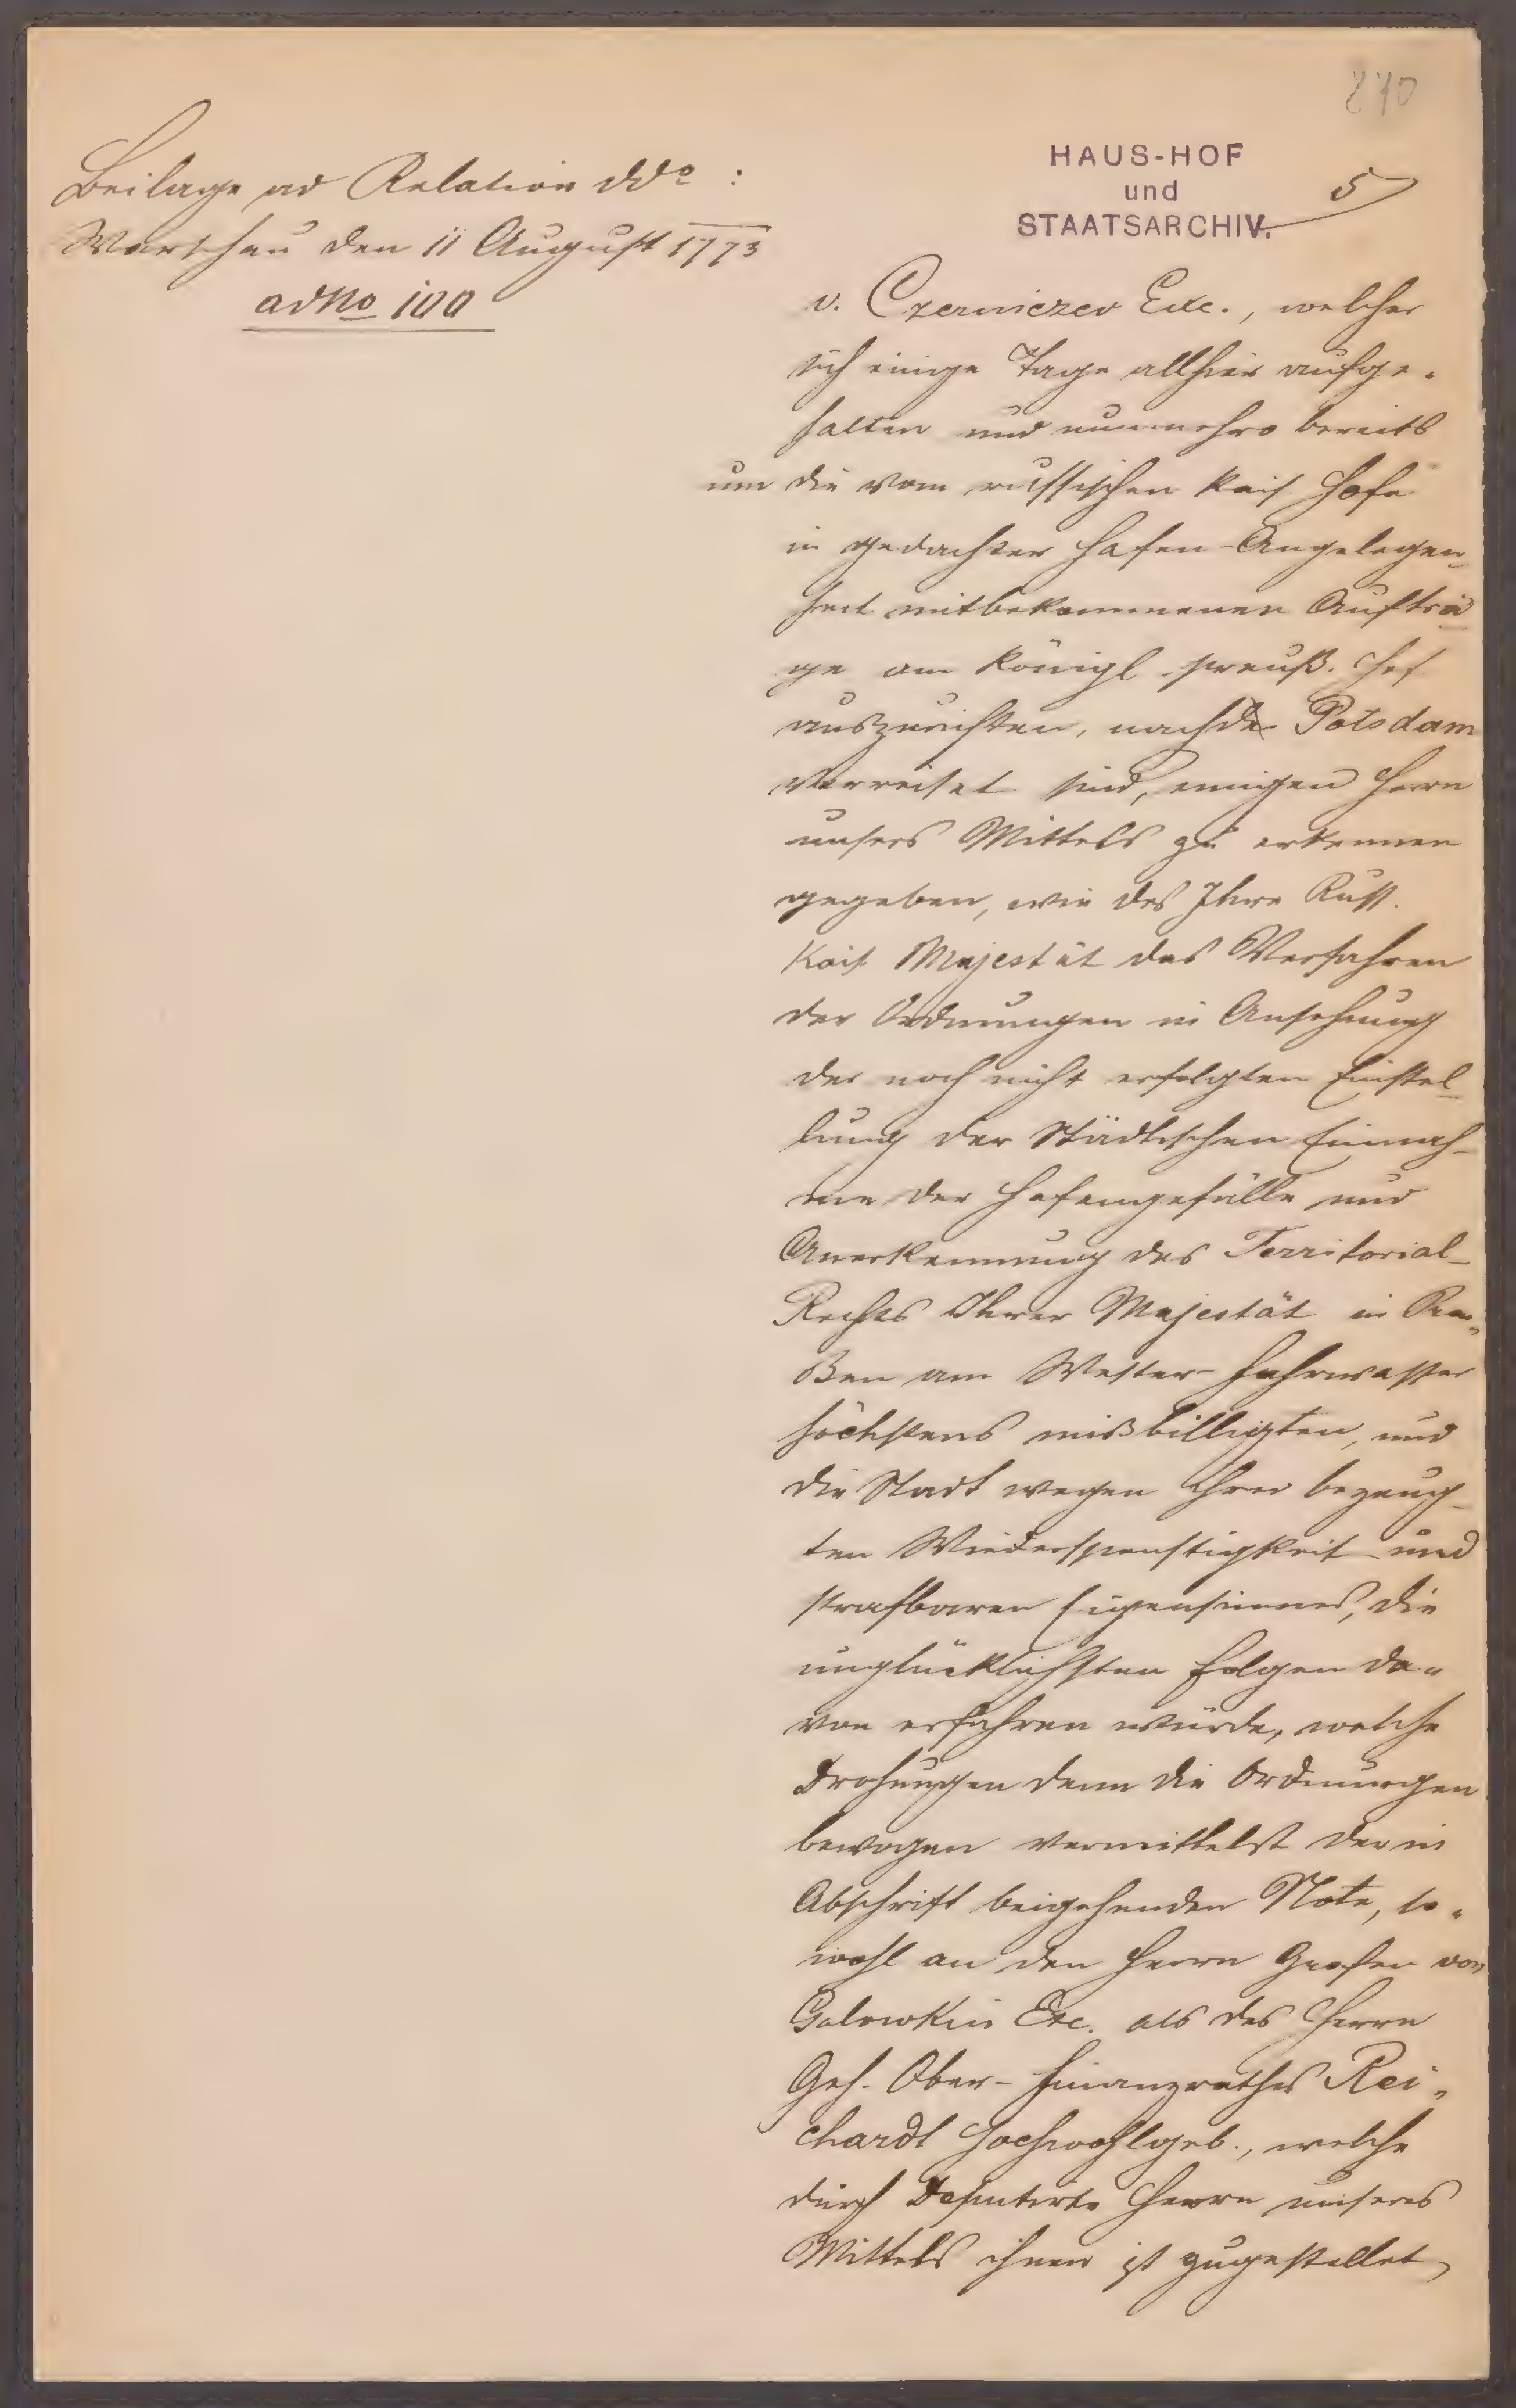 270
Beilage ad Relation ddo :
Warschau den 11 August 1773
ad No 100
HAUS-HOF
und
STAATSARCHIV.
5
v. Czerniczev Exc., welcher
sich einige Tage allhier aufge-
halten und nunmehro bereits
um die vom russischen Kais. Hofe
in gedachter Hafen-Angelegen-
heit mitbekommenen Aufträ-
ge am Königl. preuß. Hof
auszurichten, nach Potsdam
verreiset sind, einigen Herrn
unsers Mittels zu erkennen
gegeben, wie des Ihre Russ.
Kais. Majestät das Verfahren
der Ordnungen in Ansehung
der noch nicht erfolgten Einstel-
lung der Städtischen Einnah-
me der Hafengefälle und
Anerkennung des Territorial-
Rechts Ihrer Majestät in Preu-
ßen am Wester-Fahrwasser
höchstens mißbilligten, und
die Stadt wegen ihrer bezeug-
ten Wiederspenstigkeit und
strafbaren Eigensinnes, die
unglücklichsten Folgen da-
von erfahren würde, welche
Drohungen denn die Ordnungen
bewogen vermittelst der in
Abschrift beigehenden Note, so-
wohl an den Herrn Grafen von
Golowkin Exc. als des Herrn
Geh. Ober-Finanzrathes Rei-
chardt Hochwohlgeb., welche
durch Deputirte Herrn unseres
Mittels ihnen ist zugestellet,